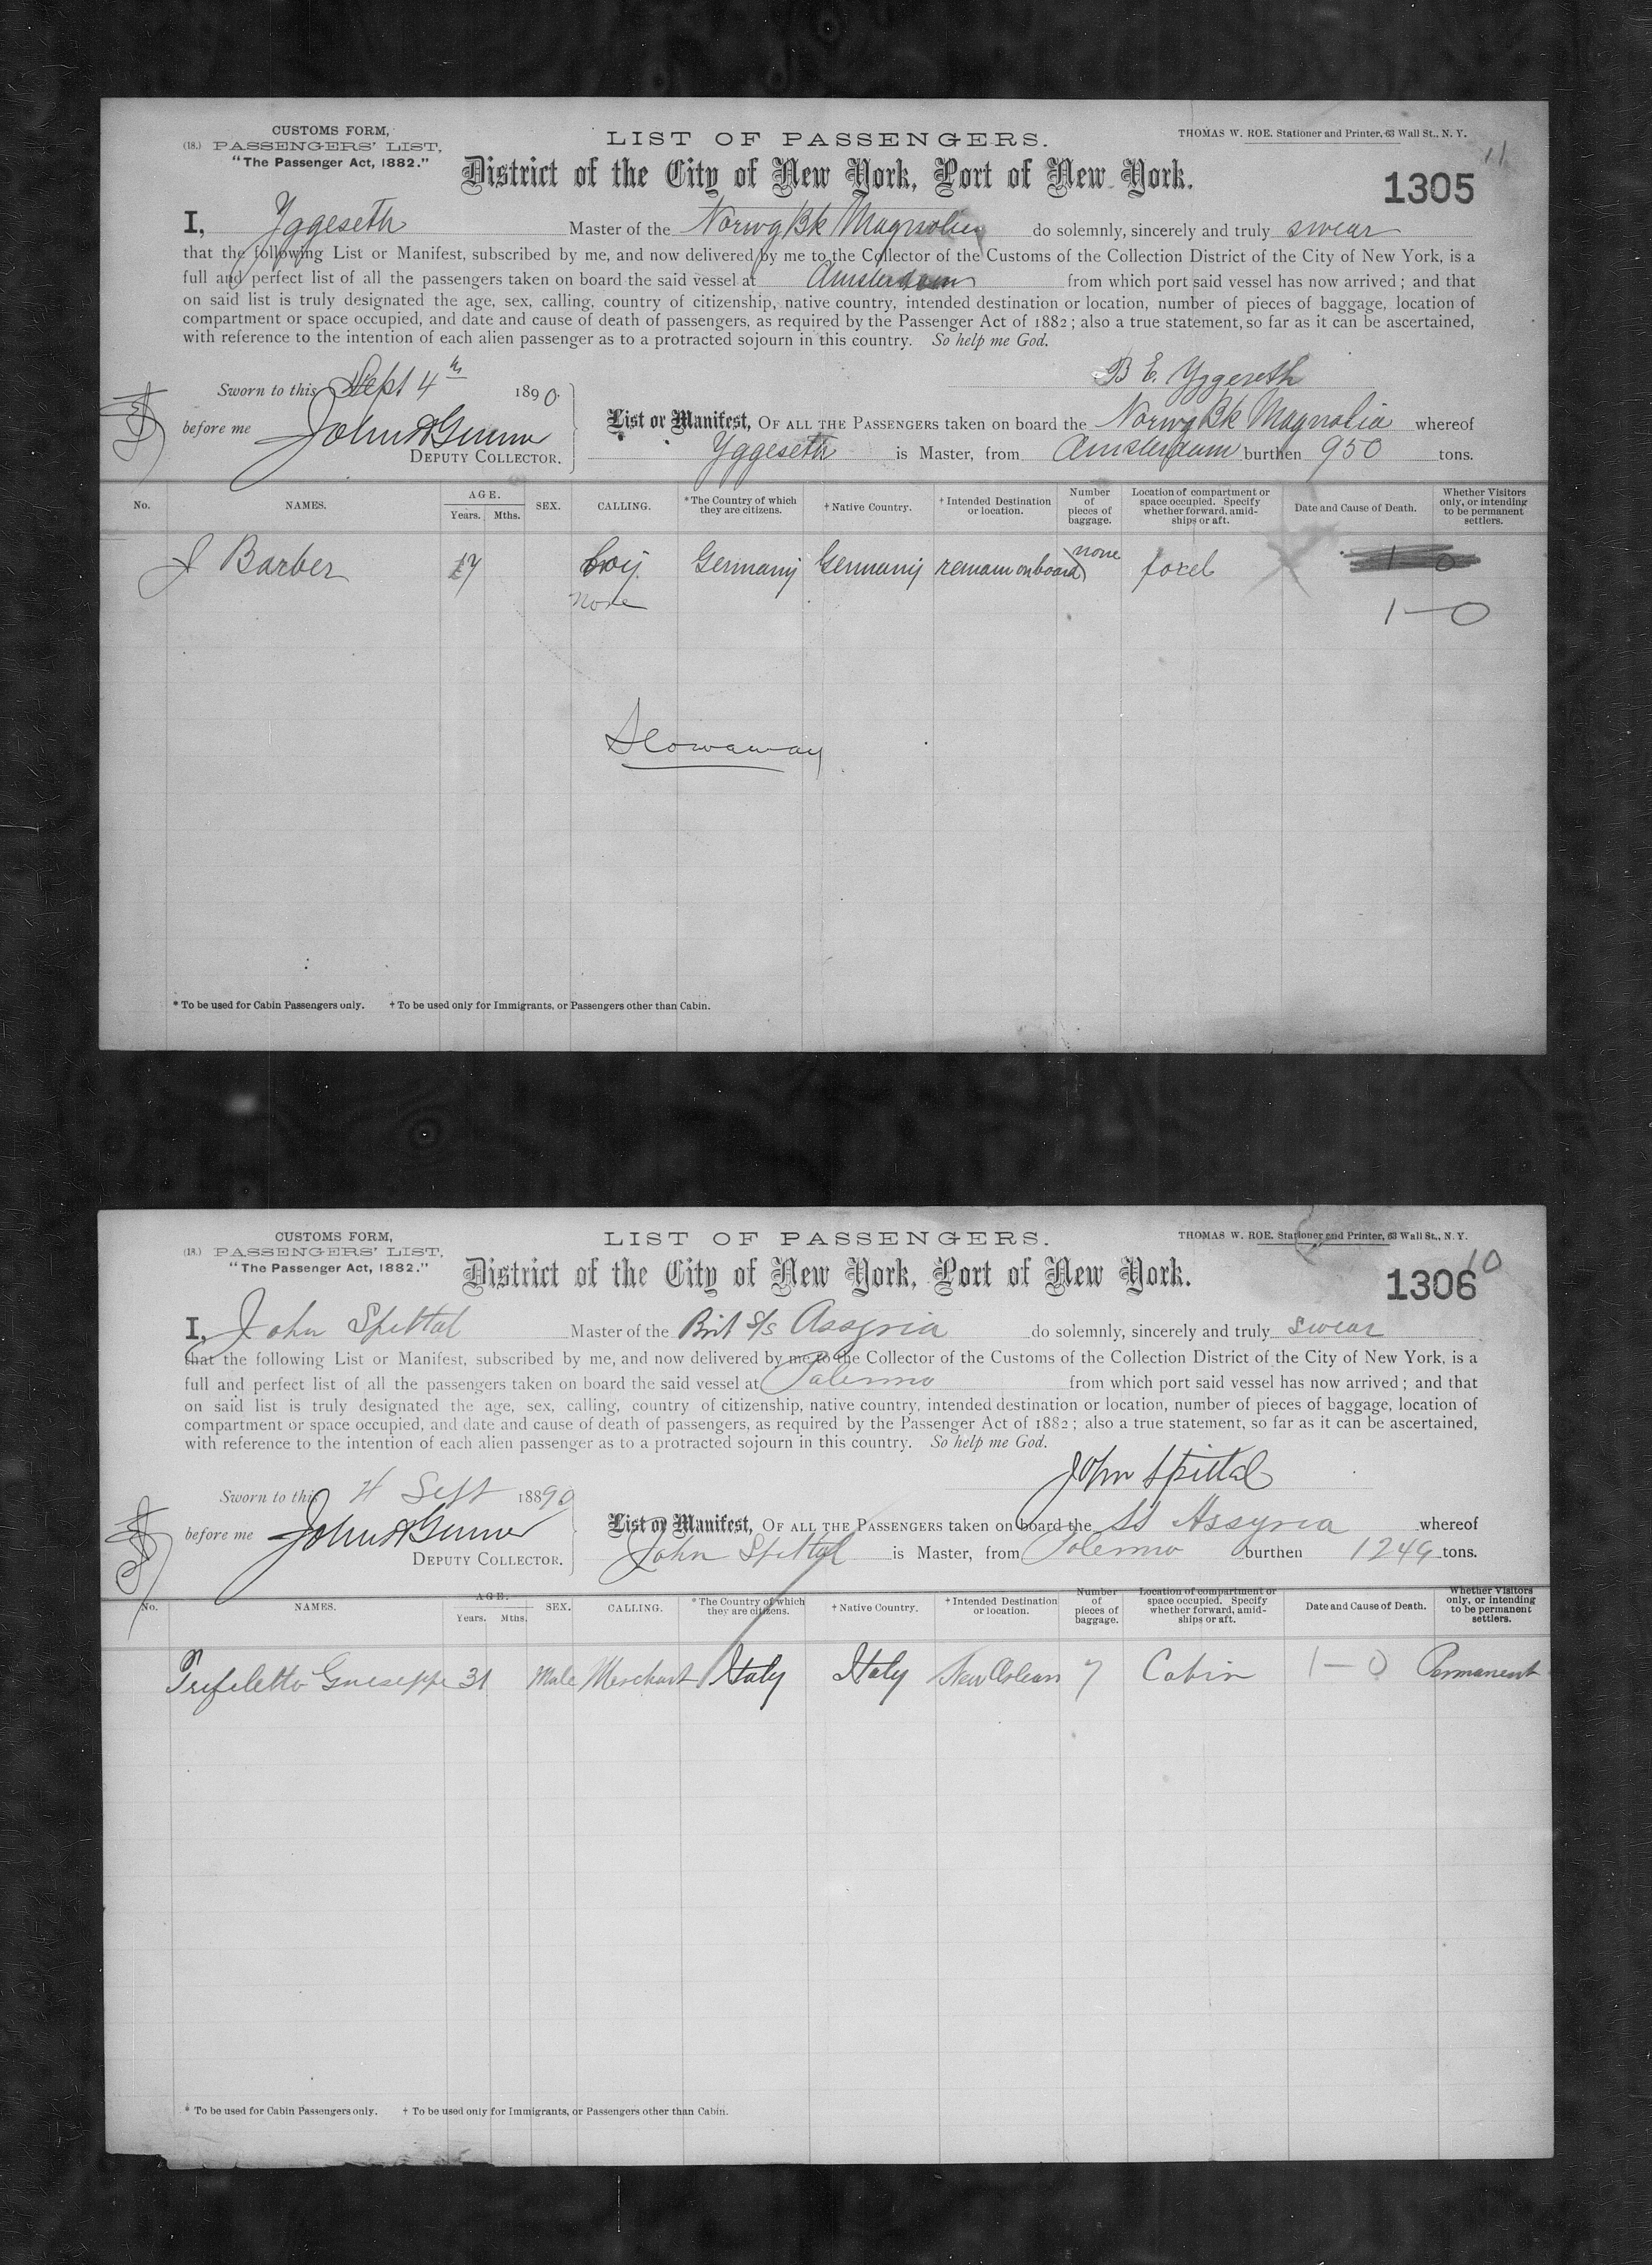 CUSTOMS FORM,
(18.) PASSENGERS' LIST,
"The Passenger Act, 1882."
LIST OF PASSENGERS.
THOMAS W. ROE. Stationer and Printer, 63 Wall St., N. Y.
11
District of the City of New York, Port of New York.
1305
I, Yggeseth Master of the Norwg Bk Magnolia do solemnly, sincerely and truly swear
that the following List or Manifest, subscribed by me, and now delivered by me to the Collector of the Customs of the Collection District of the City of New York, is a
full and perfect list of all the passengers taken on board the said vessel at Amsterdam from which port said vessel has now arrived; and that
on said list is truly designated the age, sex, calling, country of citizenship, native country, intended destination or location, number of pieces of baggage, location of
compartment or space occupied, and date and cause of death of passengers, as required by the Passenger Act of 1882; also a true statement, so far as it can be ascertained,
with reference to the intention of each alien passenger as to a protracted sojourn in this country. So help me God.
B E. Yggeseth
Sworn to this Sept 4th 1890.
List or Manifest, OF ALL THE PASSENGERS taken on board the Norwg Bk Magnolia whereof
before me John
Yggeseth is Master, from Amsterdam burthen 950 tons.
DEPUTY COLLECTOR.
No. NAMES. AGE. Years. Mths. SEX. CALLING. *The Country of which they are citizens. †Native Country. †Intended Destination or location. Number of pieces of baggage. Location of compartment or space occupied. Specify whether forward, amidships or aft. Date and Cause of Death. Whether Visitors only, or intending to be permanent settlers.
J Barber 17 boy Germany Germany remain on board none foxel 1 0
none 1—0
Stowaway
* To be used for Cabin Passengers only. † To be used only for Immigrants, or Passengers other than Cabin.
CUSTOMS FORM,
(18.) PASSENGERS' LIST,
"The Passenger Act, 1882."
LIST OF PASSENGERS.
THOMAS W. ROE. Stationer and Printer, 63 Wall St., N. Y.
10
District of the City of New York, Port of New York.
1306
I, John Spittal Master of the Brit S/s Assyria do solemnly, sincerely and truly swear
that the following List or Manifest, subscribed by me, and now delivered by me to the Collector of the Customs of the Collection District of the City of New York, is a
full and perfect list of all the passengers taken on board the said vessel at Palermo from which port said vessel has now arrived; and that
on said list is truly designated the age, sex, calling, country of citizenship, native country, intended destination or location, number of pieces of baggage, location of
compartment or space occupied, and date and cause of death of passengers, as required by the Passenger Act of 1882; also a true statement, so far as it can be ascertained,
with reference to the intention of each alien passenger as to a protracted sojourn in this country. So help me God.
John Spittal
Sworn to this 4 Sept 1890
List or Manifest, OF ALL THE PASSENGERS taken on board the SS Assyria whereof
before me John
John Spittal is Master, from Palermo burthen 1249 tons.
DEPUTY COLLECTOR.
No. NAMES. AGE. Years. Mths. SEX. CALLING. *The Country of which they are citizens. †Native Country. †Intended Destination or location. Number of pieces of baggage. Location of compartment or space occupied. Specify whether forward, amidships or aft. Date and Cause of Death. Whether Visitors only, or intending to be permanent settlers.
Trifiletto Guiseppe 31 Male Merchant Italy Italy New Orlean 7 Cabin 1—0 Permanent
* To be used for Cabin Passengers only. † To be used only for Immigrants, or Passengers other than Cabin.